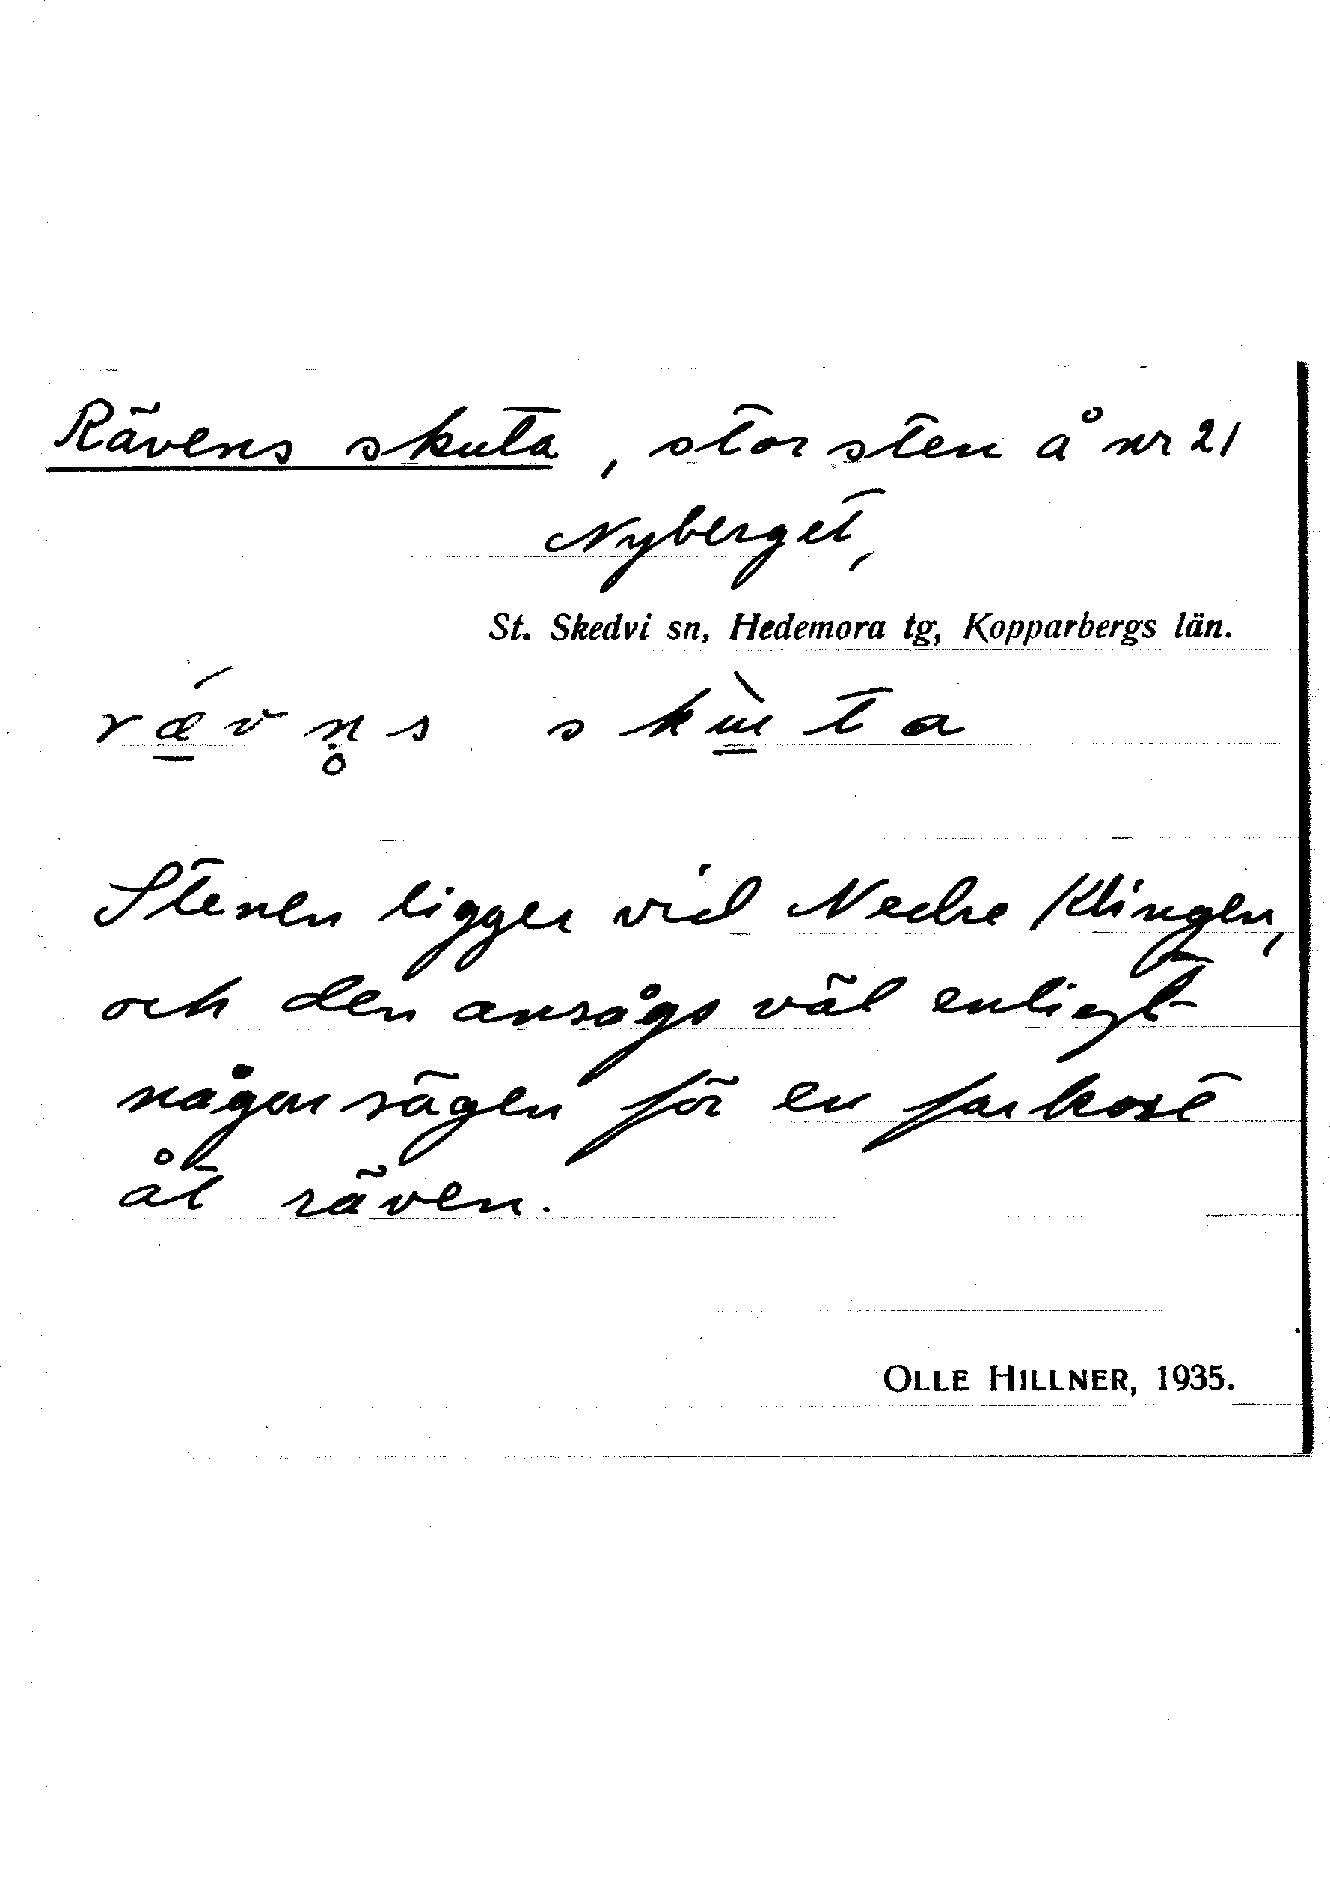 Rävens skuta, stor sten å nr 21
Nyberget,
St. Skedvi sn, Hedemora tg, Kopparbergs län.
rǽvn̥s skɯ̀ta
Stenen ligger vid Nedre Klingen,
och den ansågs väl enligt
någon sägen för en farkost
åt räven.
OLLE HILLNER, 1935.